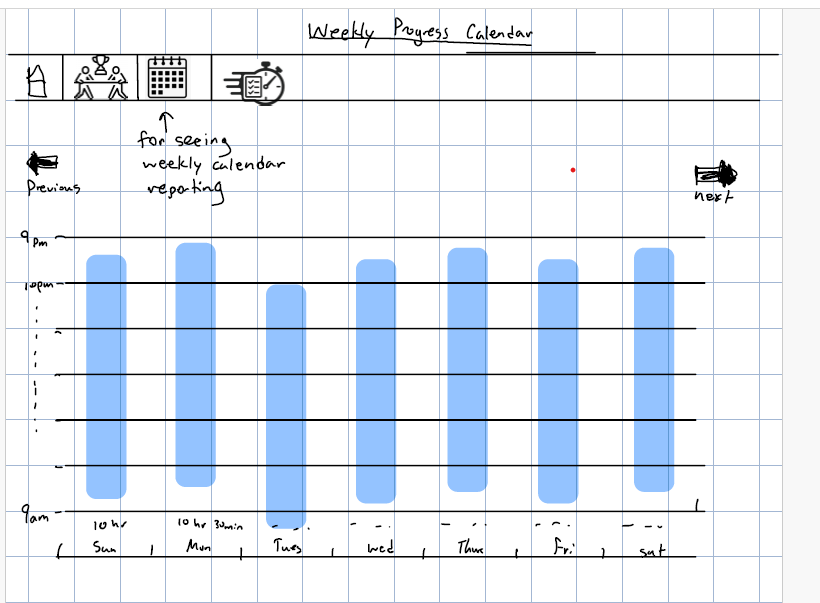 Weekly Progress Calendar
for seeing
weekly calendar
reporting
Previous
next
9pm
10pm
9am
10 hr
10 hr 30min
Sun
Mon
Tues
Wed
Thur
Fri
sat